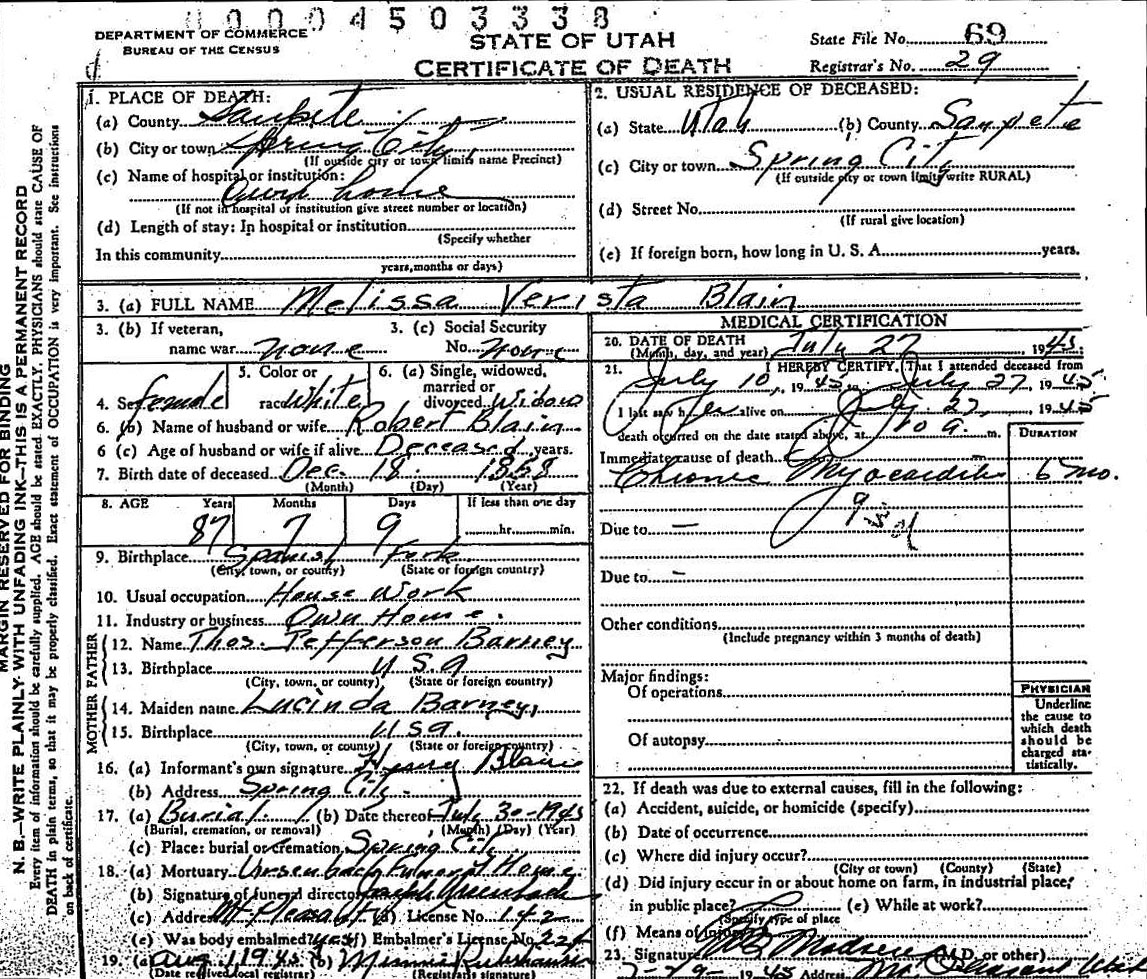 00004503338
DEPARTMENT OF COMMERCE
BUREAU OF THE CENSUS
STATE OF UTAH
CERTIFICATE OF DEATH
State File No. 69
Registrar's No. 29
MARGIN RESERVED FOR BINDING
N. B.—WRITE PLAINLY WITH UNFADING INK—THIS IS A PERMANENT RECORD
Every item of information should be carefully supplied. AGE should be stated EXACTLY. PHYSICIANS should state CAUSE OF
DEATH in plain terms, so that it may be properly classified. Exact statement of OCCUPATION is very important. See instructions
on back of certificate.
1. PLACE OF DEATH:
(a) County Sanpete
(b) City or town Spring City
(If outside city or town limits name Precinct)
(c) Name of hospital or institution:
Own home
(If not in hospital or institution give street number or location)
(d) Length of stay: In hospital or institution
(Specify whether
In this community
years, months or days)
2. USUAL RESIDENCE OF DECEASED:
(a) State Utah (b) County Sanpete
(c) City or town Spring City
(If outside city or town limits write RURAL)
(d) Street No.
(If rural give location)
(e) If foreign born, how long in U. S. A. years.
3. (a) FULL NAME Melissa Verista Blain
3. (b) If veteran,
name war none
3. (c) Social Security
No. none
4. Sex female
5. Color or
race White
6. (a) Single, widowed,
married or
divorced Widow
6. (b) Name of husband or wife Robert Blain
6 (c) Age of husband or wife if alive Deceased years.
7. Birth date of deceased Dec. 18. 1858
(Month) (Day) (Year)
8. AGE Years Months Days If less than one day
87 7 9 hr. min.
9. Birthplace Spanish Fork
(City, town, or county) (State or foreign country)
10. Usual occupation House Work
11. Industry or business Own Home.
FATHER
12. Name Thos. Jefferson Barney
13. Birthplace U S A
(City, town, or county) (State or foreign country)
MOTHER
14. Maiden name Lucinda Barney,
15. Birthplace U S A.
(City, town, or county) (State or foreign country)
16. (a) Informant's own signature Blain
(b) Address Spring City.
17. (a) Burial (b) Date thereof July 30-1945
(Burial, cremation, or removal) (Month) (Day) (Year)
(c) Place: burial or cremation Spring City
18. (a) Mortuary Ursenbach Funeral Home
(b) Signature of funeral director Ursenbach
(c) Address Mt Pleasant (d) License No. 142
(e) Was body embalmed? yes (f) Embalmer's License No. 224
19. (a) Aug 1 1945 (b) Minnie
(Date received local registrar) (Registrar's signature)
MEDICAL CERTIFICATION
20. DATE OF DEATH
(Month, day, and year) July 27 1945
21. I HEREBY CERTIFY, That I attended deceased from
July 10, 1945 to July 27, 1945
I last saw her alive on July 27, 1945
death occurred on the date stated above, at 10 a. m.
DURATION
Immediate cause of death
Chronic Myocarditis 6 mo.
Due to —
Due to —
Other conditions
(Include pregnancy within 3 months of death)
Major findings:
Of operations
Of autopsy
PHYSICIAN
Underline
the cause to
which death
should be
charged sta-
tistically.
22. If death was due to external causes, fill in the following:
(a) Accident, suicide, or homicide (specify)
(b) Date of occurrence
(c) Where did injury occur?
(City or town) (County) (State)
(d) Did injury occur in or about home on farm, in industrial place,
in public place? (e) While at work?
(Specify type of place
(f) Means of injury
23. Signature Madsen (M.D. or other)
7-29- 1945 Address Mt. Pleasant Utah